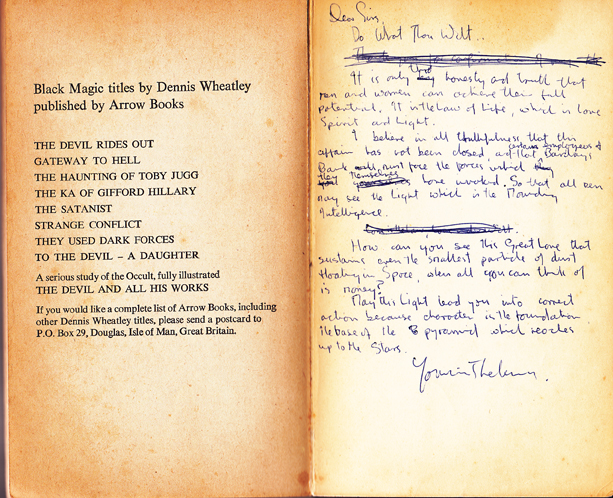 Black Magic titles by Dennis Wheatley
published by Arrow Books
THE DEVIL RIDES OUT
GATEWAY TO HELL
THE HAUNTING OF TOBY JUGG
THE KA OF GIFFORD HILLARY
THE SATANIST
STRANGE CONFLICT
THEY USED DARK FORCES
TO THE DEVIL – A DAUGHTER
A serious study of the Occult, fully illustrated
THE DEVIL AND ALL HIS WORKS
If you would like a complete list of Arrow Books, including
other Dennis Wheatley titles, please send a postcard to
P.O. Box 29, Douglas, Isle of Man, Great Britain.
Dear Sirs,
Do What Thou Wilt..
It is only honesty and that
men and women can achieve their full
potential. It is the Law of Life, which is Love
Spirit and Light.
I believe in all truthfulness that this
certain employees of
affair has not been closed, and that Barclays
Bank must face the forces which
they themselves
have invoked. So that all men
may see the Light which is the
Intelligence.
How can you see this Great Love that
sustains even the smallest particle of dust
floating in Space, when all you can think of
is money?
May this Light lead you into correct
action because character is the foundation
the base of the pyramid which reaches
up to the Stars.
Yours in Thelema.